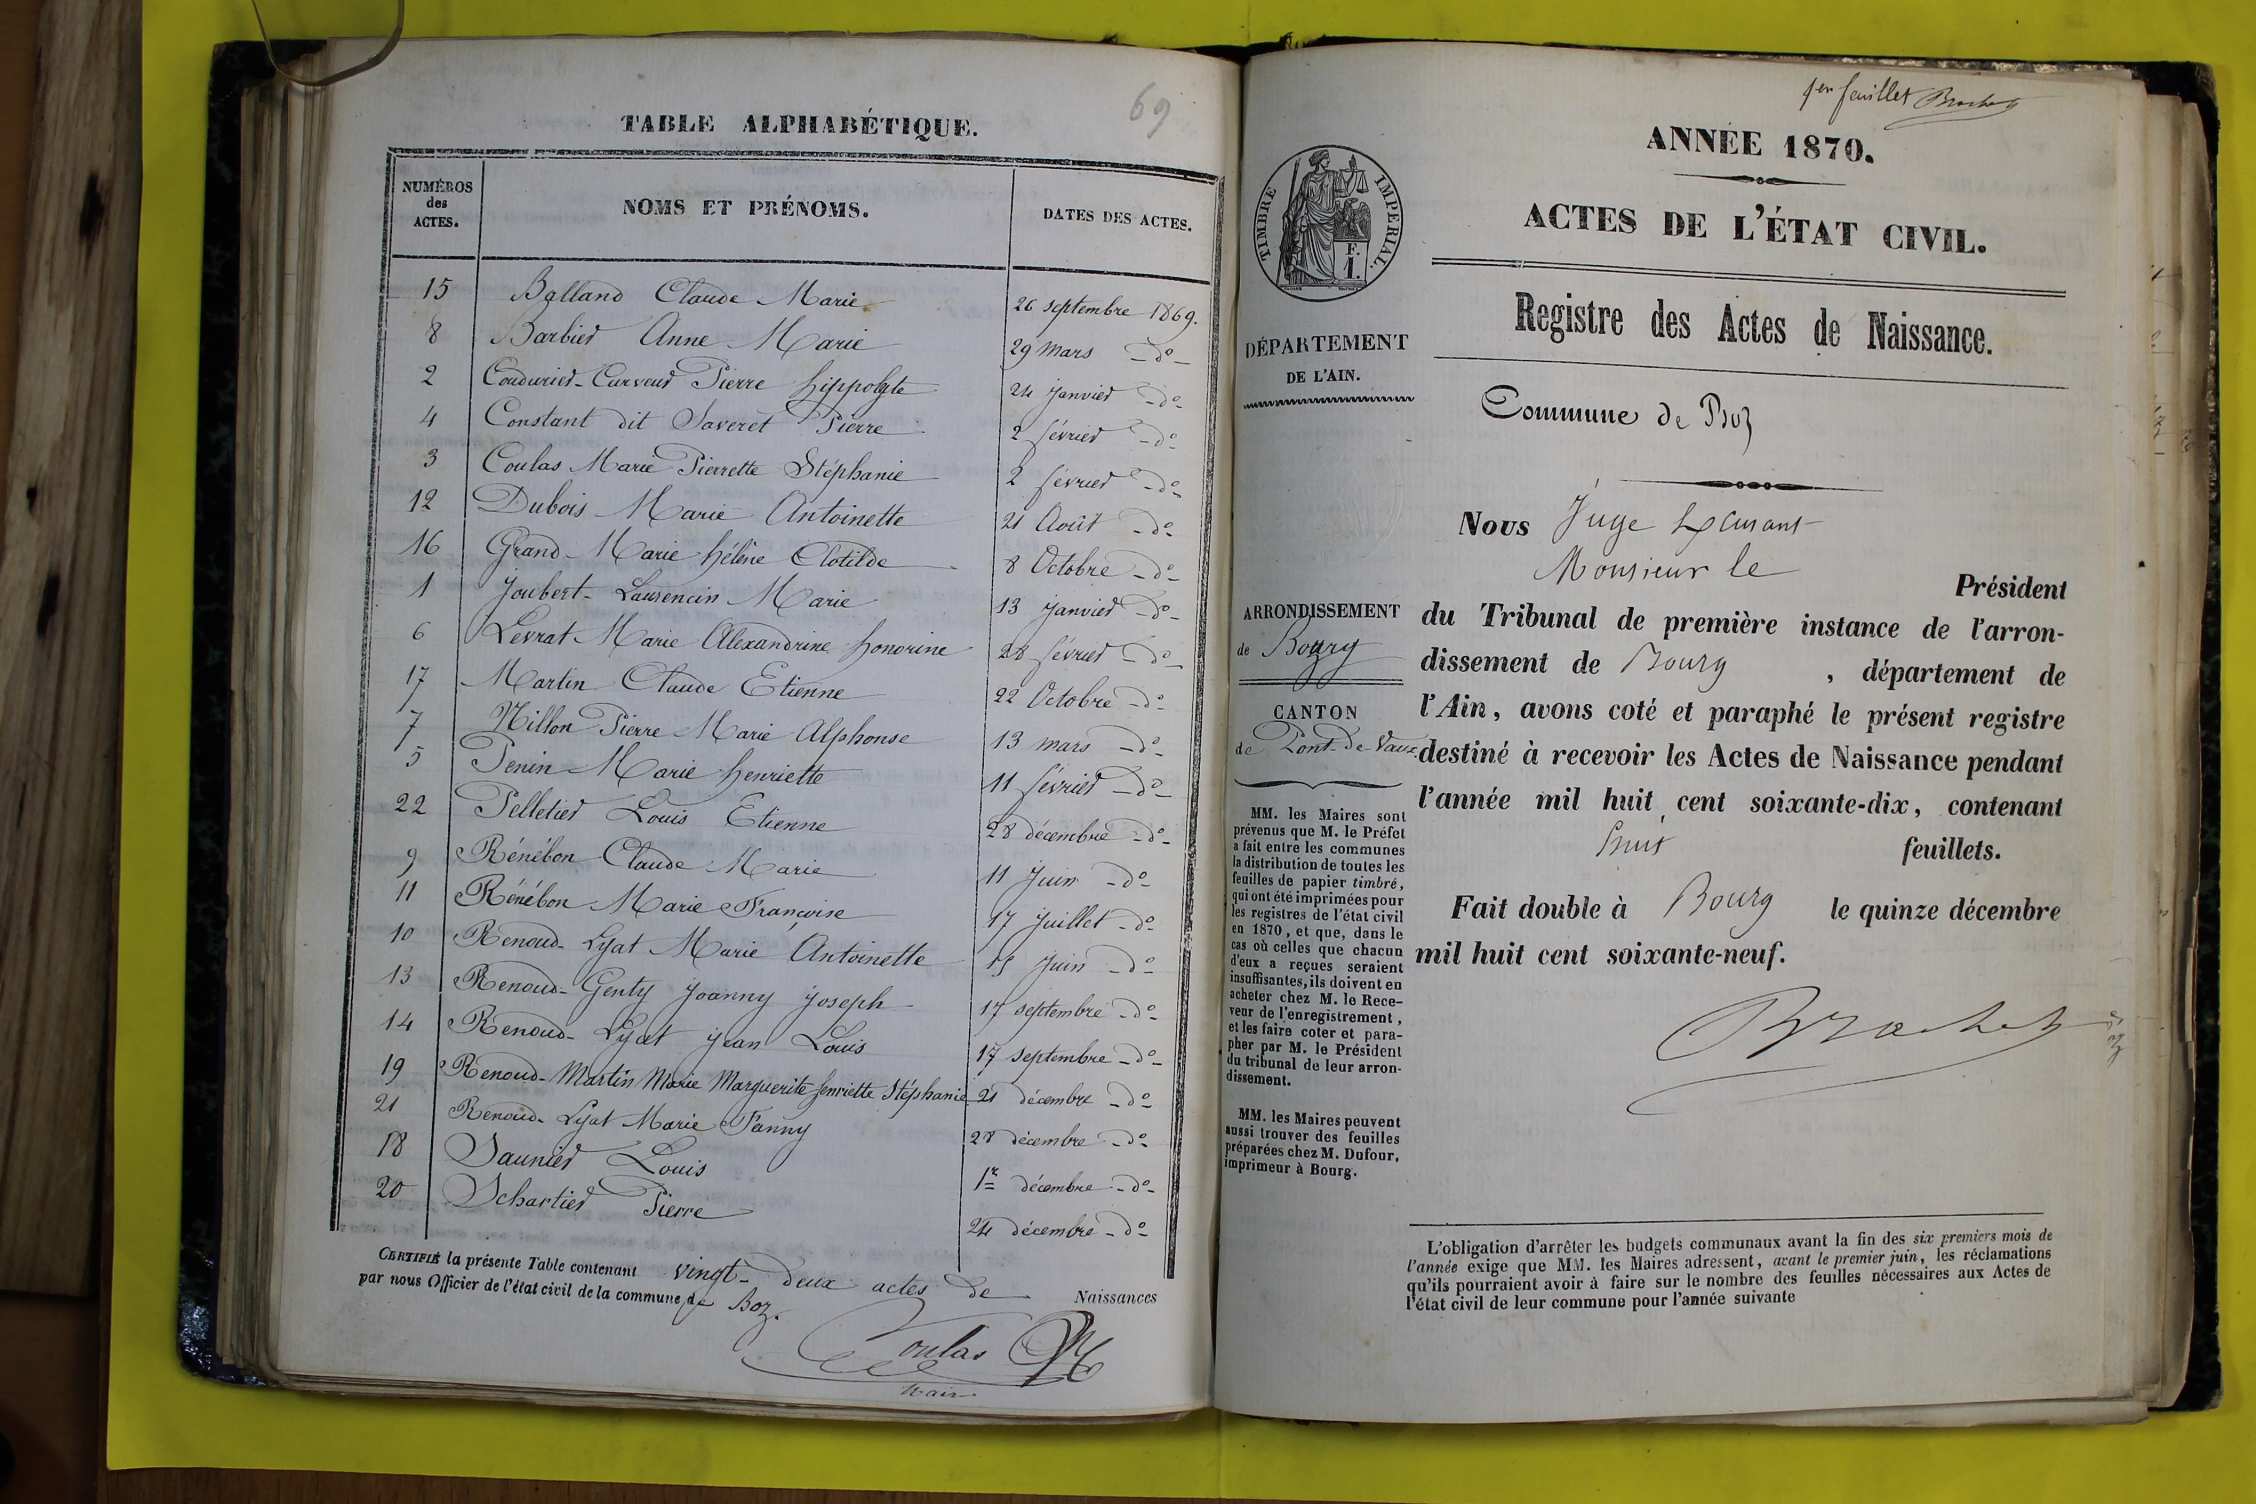 69
TABLE ALPHABÉTIQUE.
NUMÉROS des ACTES. NOMS ET PRÉNOMS. DATES DES ACTES.
15 Balland Claude Marie 26 septembre 1869.
8 Barbier Anne Marie 29 mars -do-
2 Coudurier-Curveur Pierre hippolyte 24 janvier -do-
4 Constant dit Saveret Pierre 2 février -do-
3 Coulas Marie Pierrette Stéphanie 2 février -do-
12 Dubois Marie Antoinette 21 Août -do-
16 Grand Marie hélène Clotilde 8 Octobre -do-
1 Joubert-Laurencin Marie 13 janvier -do-
6 Levrat Marie Alexandrine honorine 28 février -do-
17 Martin Claude Etienne 22 Octobre -do-
7 Millon Pierre Marie Alphonse 13 mars -do-
5 Penin Marie henriette 11 février -do-
22 Pelletier Louis Etienne 28 décembre -do-
9 Rénébon Claude Marie 11 Juin -do-
11 Rénébon Marie Françoise 17 Juillet -do-
10 Renoud-Lyat Marie Antoinette 15 Juin -do-
13 Renoud-Genty Joanny joseph 17 septembre -do-
14 Renoud-Lyat jean Louis 17 septembre -do-
19 Renoud-Martin Marie Marguerite henriette Stéphanie 21 décembre -do-
21 Renoud-Lyat Marie Fanny 28 décembre -do-
18 Saunier Louis 1r décembre -do-
20 Schartier Pierre 24 décembre -do-
CERTIFIÉ la présente Table contenant vingt-deux actes de Naissances
par nous Officier de l'état civil de la commune de Boz.
Coulas
1er feuillet Brochet
ANNÉE 1870.
ACTES DE L'ÉTAT CIVIL.
Registre des Actes de Naissance.
TIMBRE IMPERIAL.
F.
1.
DÉPARTEMENT
DE L'AIN.
Commune de Boz
Nous Juge
Monsieur le Président
du Tribunal de première instance de l'arron-
dissement de Bourg, département de
l'Ain, avons coté et paraphé le présent registre
destiné à recevoir les Actes de Naissance pendant
l'année mil huit cent soixante-dix, contenant
huit feuillets.
Fait double à Bourg le quinze décembre
mil huit cent soixante-neuf.
Brochet
ARRONDISSEMENT
de Bourg
CANTON
de Pont-de-Vaux
MM. les Maires sont
prévenus que M. le Préfet
a fait entre les communes
la distribution de toutes les
feuilles de papier timbré,
qui ont été imprimées pour
les registres de l'état civil
en 1870, et que, dans le
cas où celles que chacun
d'eux a reçues seraient
insuffisantes, ils doivent en
acheter chez M. le Rece-
veur de l'enregistrement,
et les faire coter et para-
pher par M. le Président
du tribunal de leur arron-
dissement.
MM. les Maires peuvent
aussi trouver des feuilles
préparées chez M. Dufour,
imprimeur à Bourg.
L'obligation d'arrêter les budgets communaux avant la fin des six premiers mois de
l'année exige que MM. les Maires adressent, avant le premier juin, les réclamations
qu'ils pourraient avoir à faire sur le nombre des feuilles nécessaires aux Actes de
l'état civil de leur commune pour l'année suivante